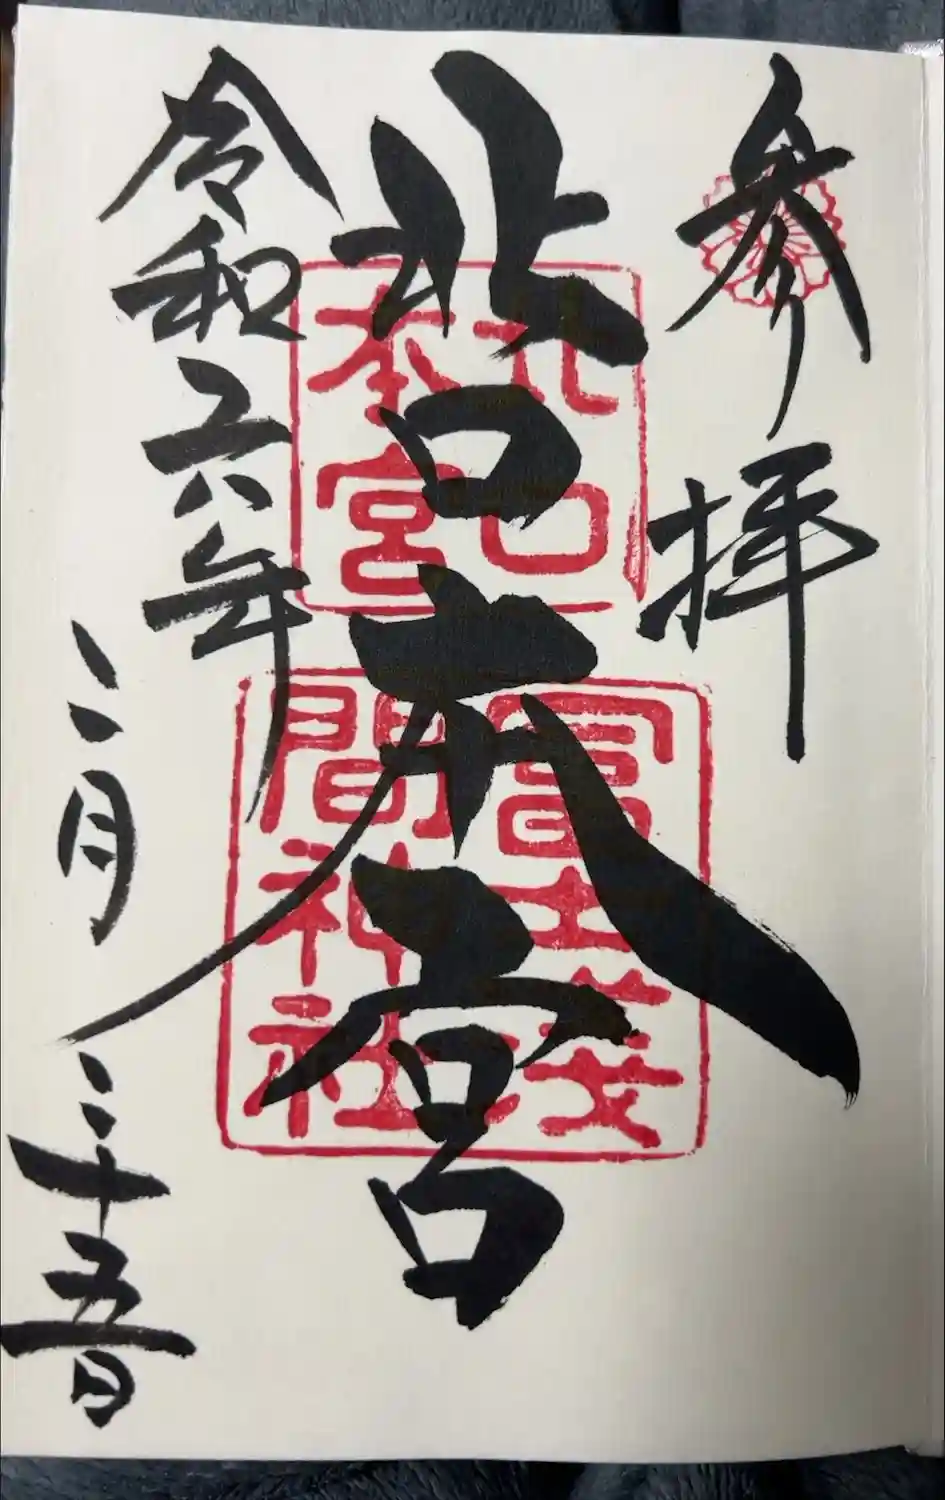 参拝
北口本宮
北口
本宮
冨士淺
間神社
令和六年
二月
二十五日